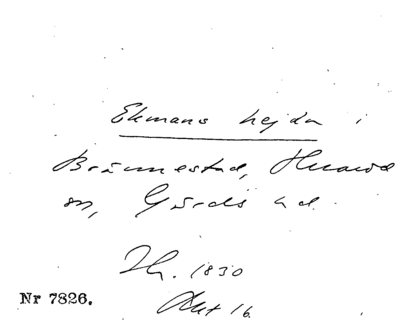 Ekmans hejda i
Brännestad, Huaröd
sn, Gärds hd.
Th. 1830
Akt 16.
Nr 7826.